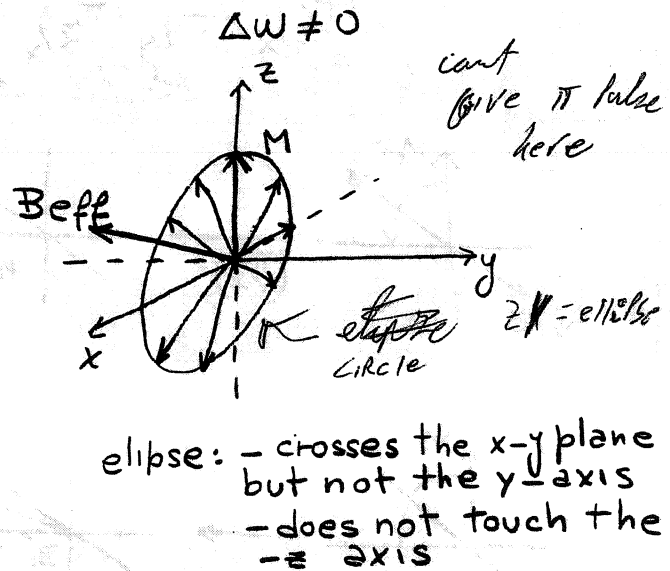 Δω ≠ 0
z
cant
give π Pulse
here
M
Beff
y
x
CIRCLE
= ellipse
elipse: - crosses the x-y plane
but not the y-axis
- does not touch the
-z axis